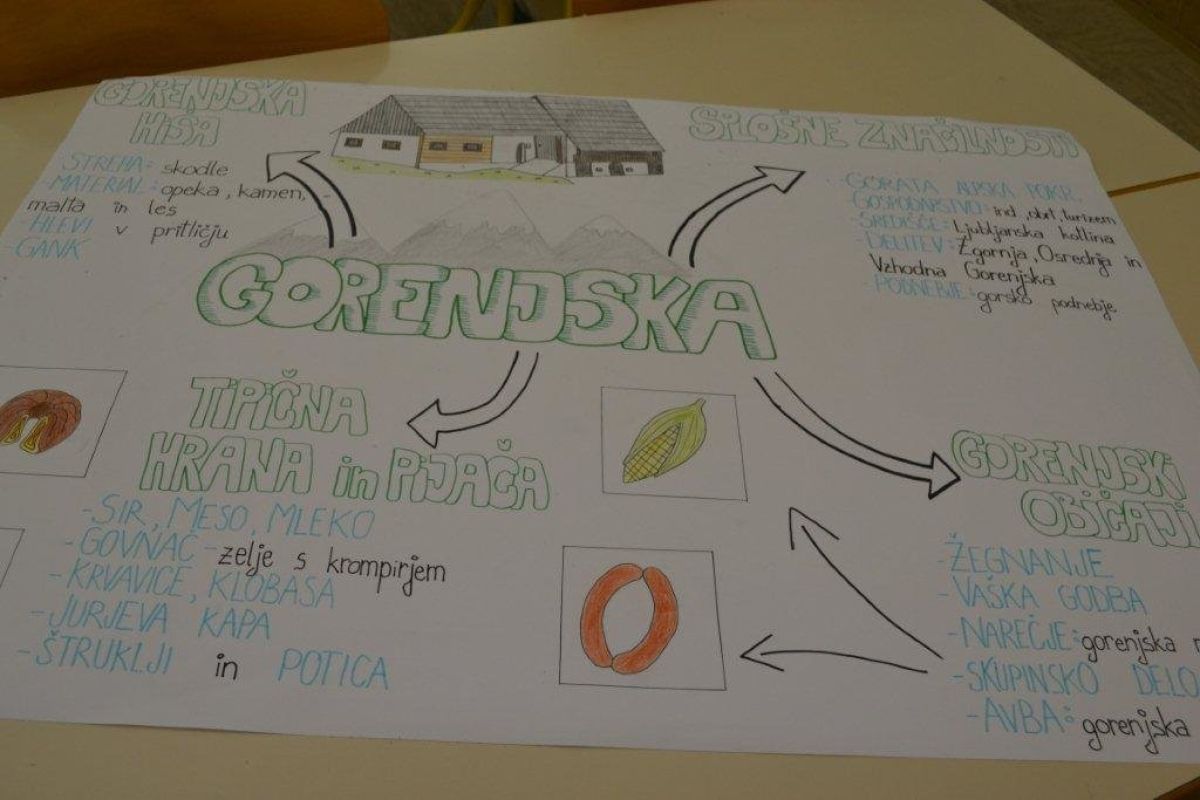 GORENJSKA
HIŠA
-STREHA: skodle
-MATERIAL: opeka, kamen,
malta in les
-HLEVI v pritličju
-GANK
SPLOŠNE ZNAČILNOSTI
-GORATA ALPSKA POKR.
-GOSPODARSTVO: ind., obrt, turizem
-SREDIŠČE: Ljubljanska kotlina
-DELITEV: Zgornja, Osrednja in
Vzhodna Gorenjska
-PODNEBJE: gorsko podnebje
GORENJSKA
TIPIČNA
HRANA in PIJAČA
-SIR, MESO, MLEKO
-GOVNAČ - zelje s krompirjem
-KRVAVICE, KLOBASA
-JURJEVA KAPA
-ŠTRUKLJI in POTICA
GORENJSKI
OBIČAJI
-ŽEGNANJE
-VAŠKA GODBA
-NAREČJE: gorenjska
-SKUPINSKO DELO
-AVBA: gorenjska